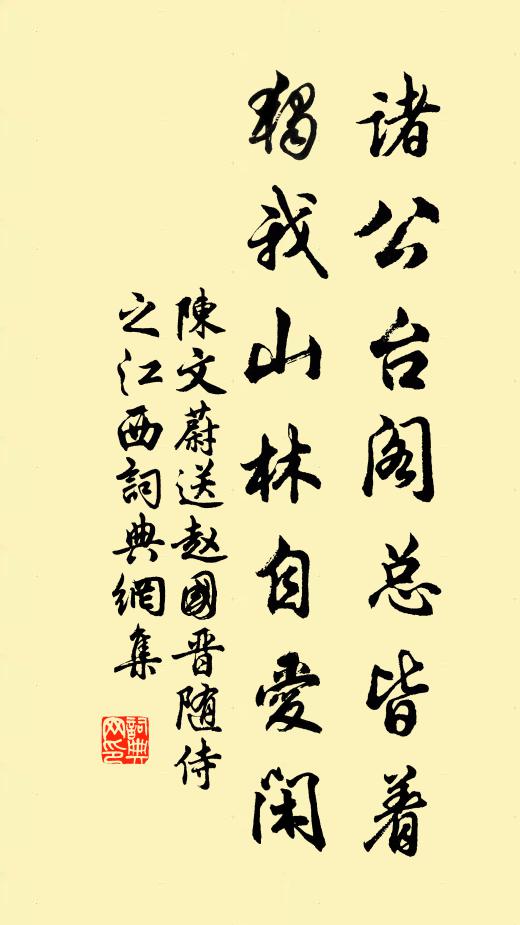 诸公台阁总皆着
独我山林自爱闲
陳文蔚送赵國晋随侍
之江西詞典網集
詞典网印